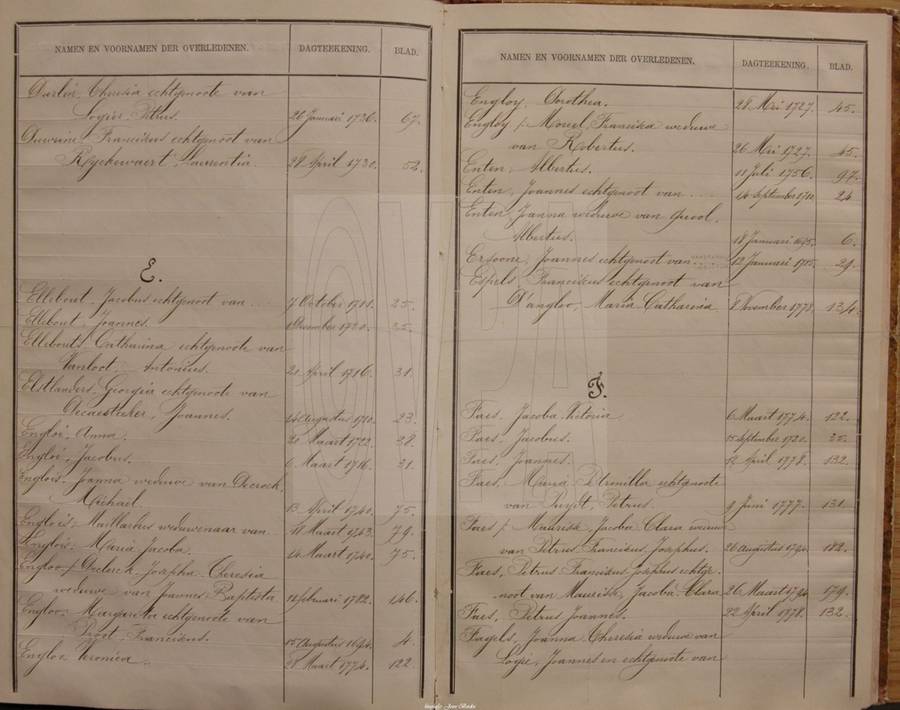 NAMEN EN VOORNAMEN DER OVERLEDENEN. DAGTEEKENING. BLAD.
Theresia echtgenoote van
Logier, Petrus. 26 Januari 1736. 67.
Franciskus echtgenoot van
Ryckewaert, Laurentia. 28 April 1730. 52.
E.
Ellebout, Jacobus echtgenoot van .... 7 October 1711. 25.
Ellebout, Joannes. 25.
Ellebouts, Catharina echtgenoote van
Vanloot, Antonius. 21 April 1716. 31.
Elstlanders, Georgia echtgenoote van
Joannes. Augustus 1710. 23.
Engloi, Anna. 20 Maart 1722. 28.
Engloi, Jacobus. 6 Maart 1716. 31.
Englois, Joanna weduwe van Decrock,
Michaël. 13 April 1740. 75.
Englois, weduwenaar van Maart 1743. 79.
Englois, Maria Jacoba. Maart 1740. 75.
Engloo f. Declerck, Josepha Theresia
weduwe van Joannes Baptista 12 februari 1782. 146.
Engloo, Margareta echtgenoote van
Proot, Franciscus. 15 Augustus 1694. 4.
Engloo, Veronica. 28 Maart 1774. 122.
NAMEN EN VOORNAMEN DER OVERLEDENEN. DAGTEEKENING. BLAD.
Engloy, Dorothea. 28 Mei 1727. 45.
Engloy f. Morel, Franciska weduwe
van Robertus. 26 Mei 1727. 45.
Enten, Albertus. 11 Juli 1756. 97.
Enten, Joannes echtgenoot van .... 14 September 1710. 24
Enten, Joanna weduwe van
Albertus. 18 Januari 1695. 6.
Ersoone, Joannes echtgenoot van .... 12 Januari 1715. 29.
Espels, Franciskus echtgenoot van
D'angloo, Maria Catharina 8 November 1778. 134.
F.
Faes, Jacoba Victoria 6 Maart 1774. 122.
Faes, Jacobus. 15 September 1720. 35.
Faes, Joannes. 12 April 1778. 132.
Faes, Maria Petronilla echtgenoote
van Petrus. 9 Juni 1777. 131.
Faes f. Maurisk, Jacoba Clara weduwe
van Petrus Franciskus Josephus. 26 Augustus 1794. 182.
Faes, Petrus Franciskus Josephus echtge-
noot van Maurisk, Jacoba Clara. 26 Maart 1794 179.
Faes, Petrus Joannes. 22 April 1778. 132.
Fagels, Joanna Theresia weduwe van
Logie, Joannes en echtgenoote van